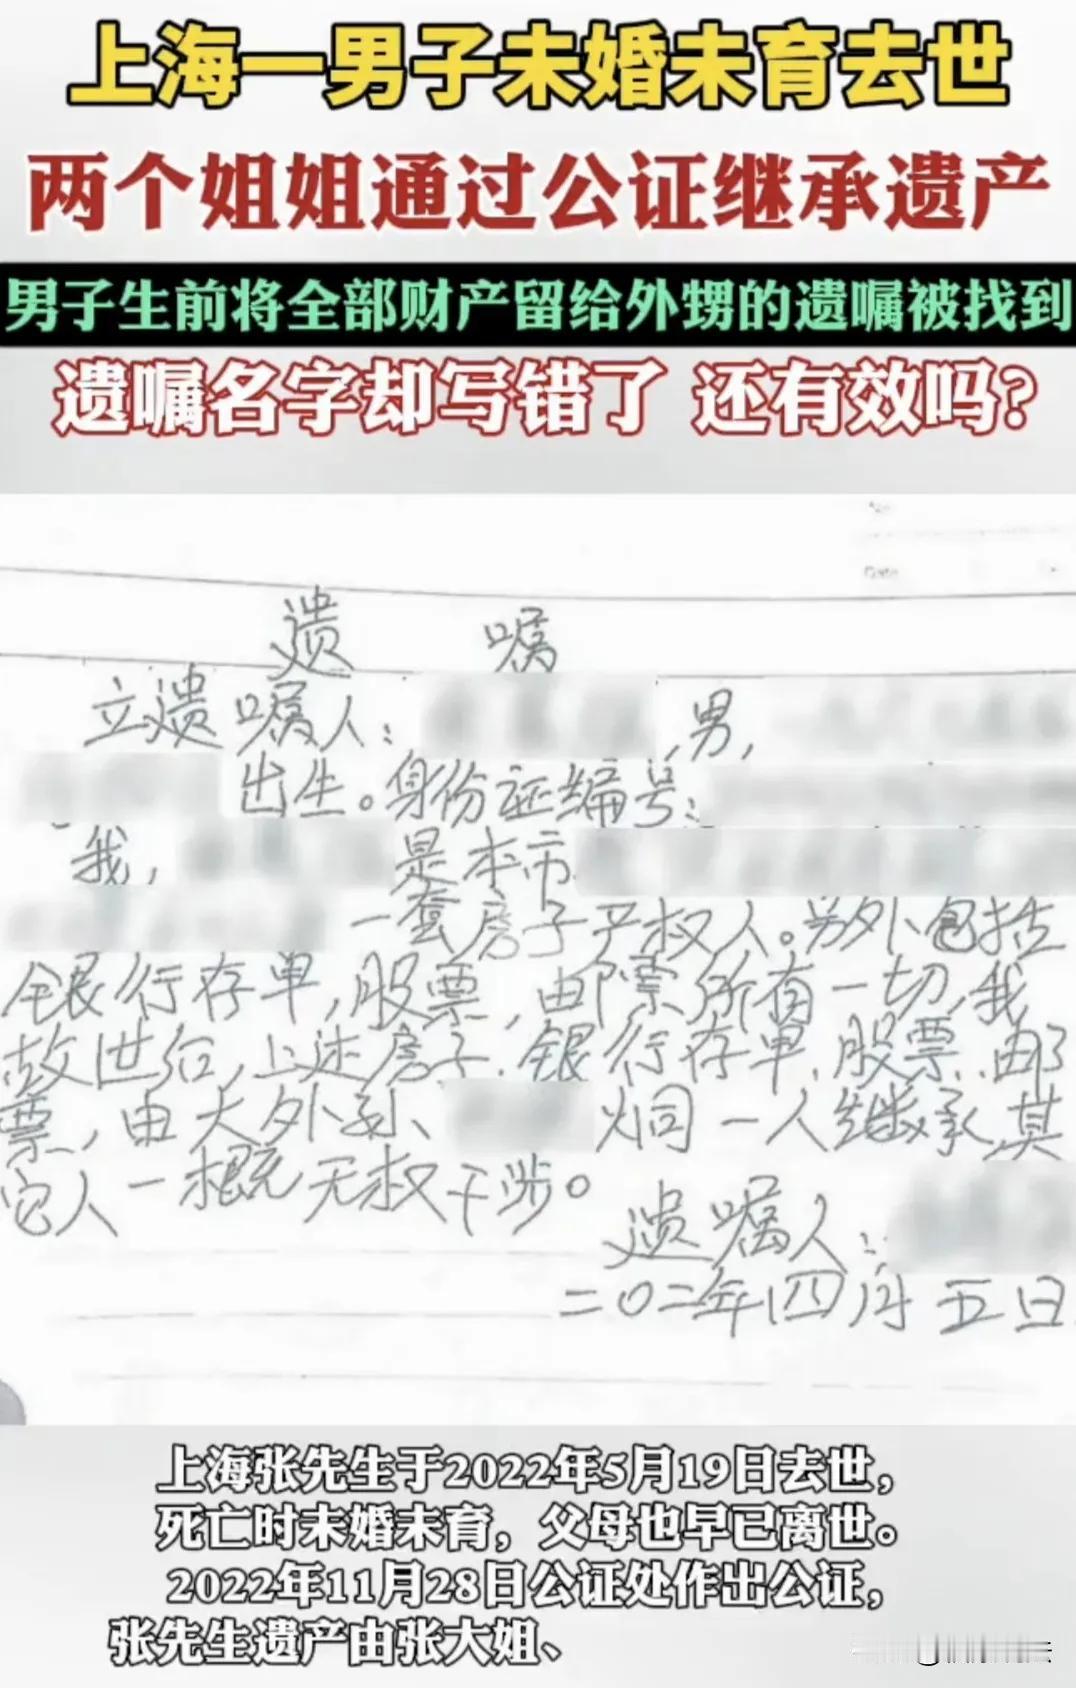 上海一男子未婚未育去世
两个姐姐通过公证继承遗产
男子生前将全部财产留给外甥的遗嘱被找到
遗嘱名字却写错了 还有效吗?
No
Date
遗 嘱
立遗嘱人: ,男,
出生。身份证编号:
我, 是本市
一套房子产权人。另外包括
银行存单,股票,邮票所有一切,我
故世后,上述房子、银行存单、股票、邮
票,由大外孙、 炯一人继承,其
它人一概无权干涉。
遗嘱人:
二〇二年四月五日
上海张先生于2022年5月19日去世,
死亡时未婚未育,父母也早已离世。
2022年11月28日公证处作出公证,
张先生遗产由张大姐、